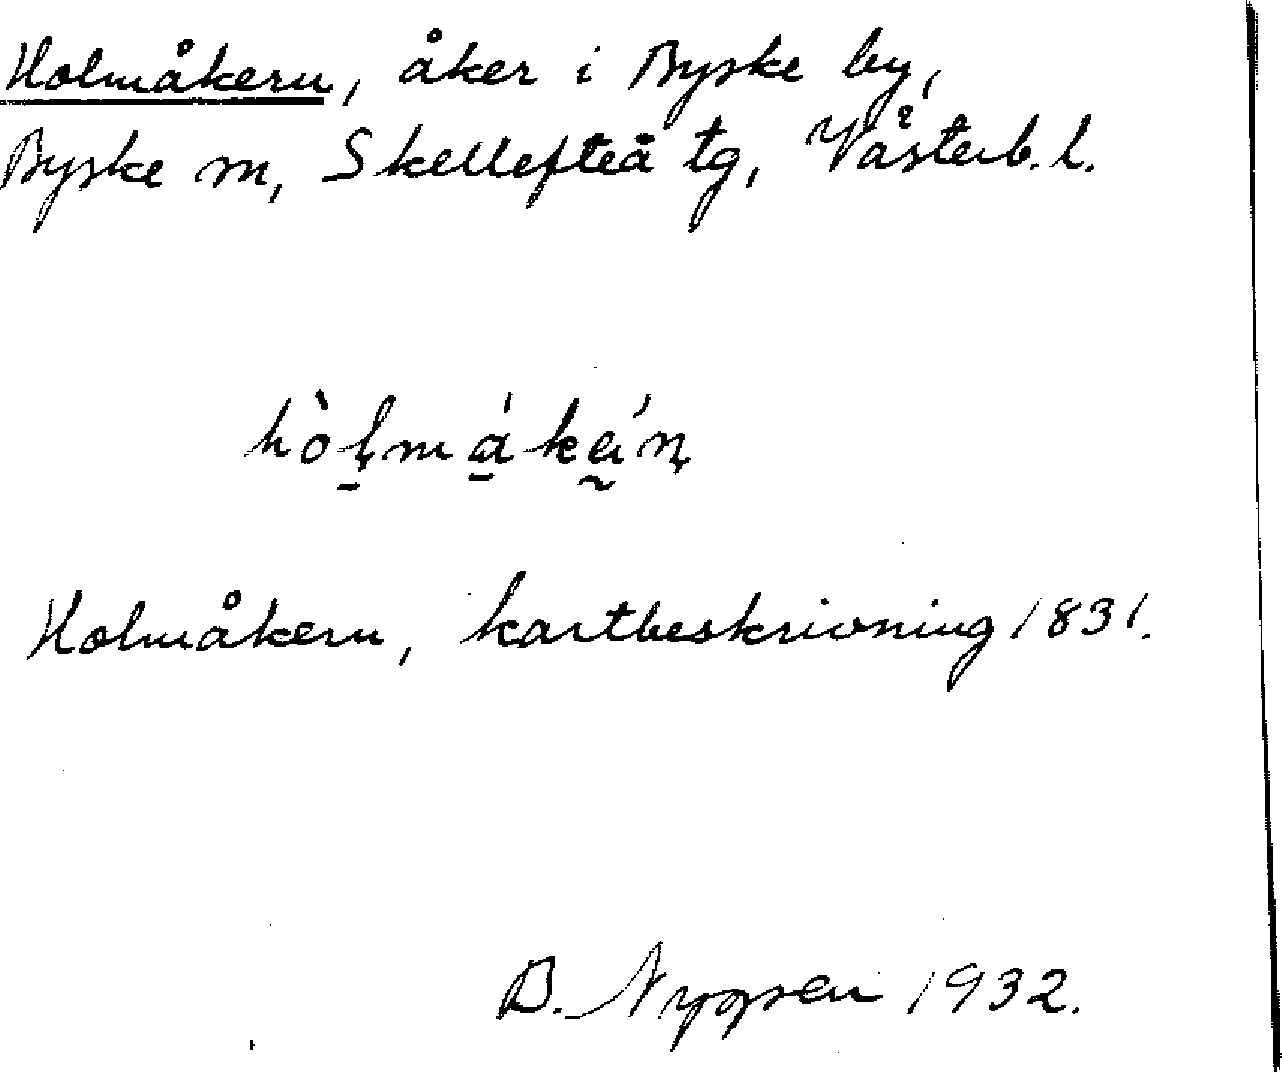 Holmåkern, åker i Byske by,
Byske sn, Skellefteå tg, Västerb. l.
Holmåkern, kartbeskrivning 1831.
B. 1932.